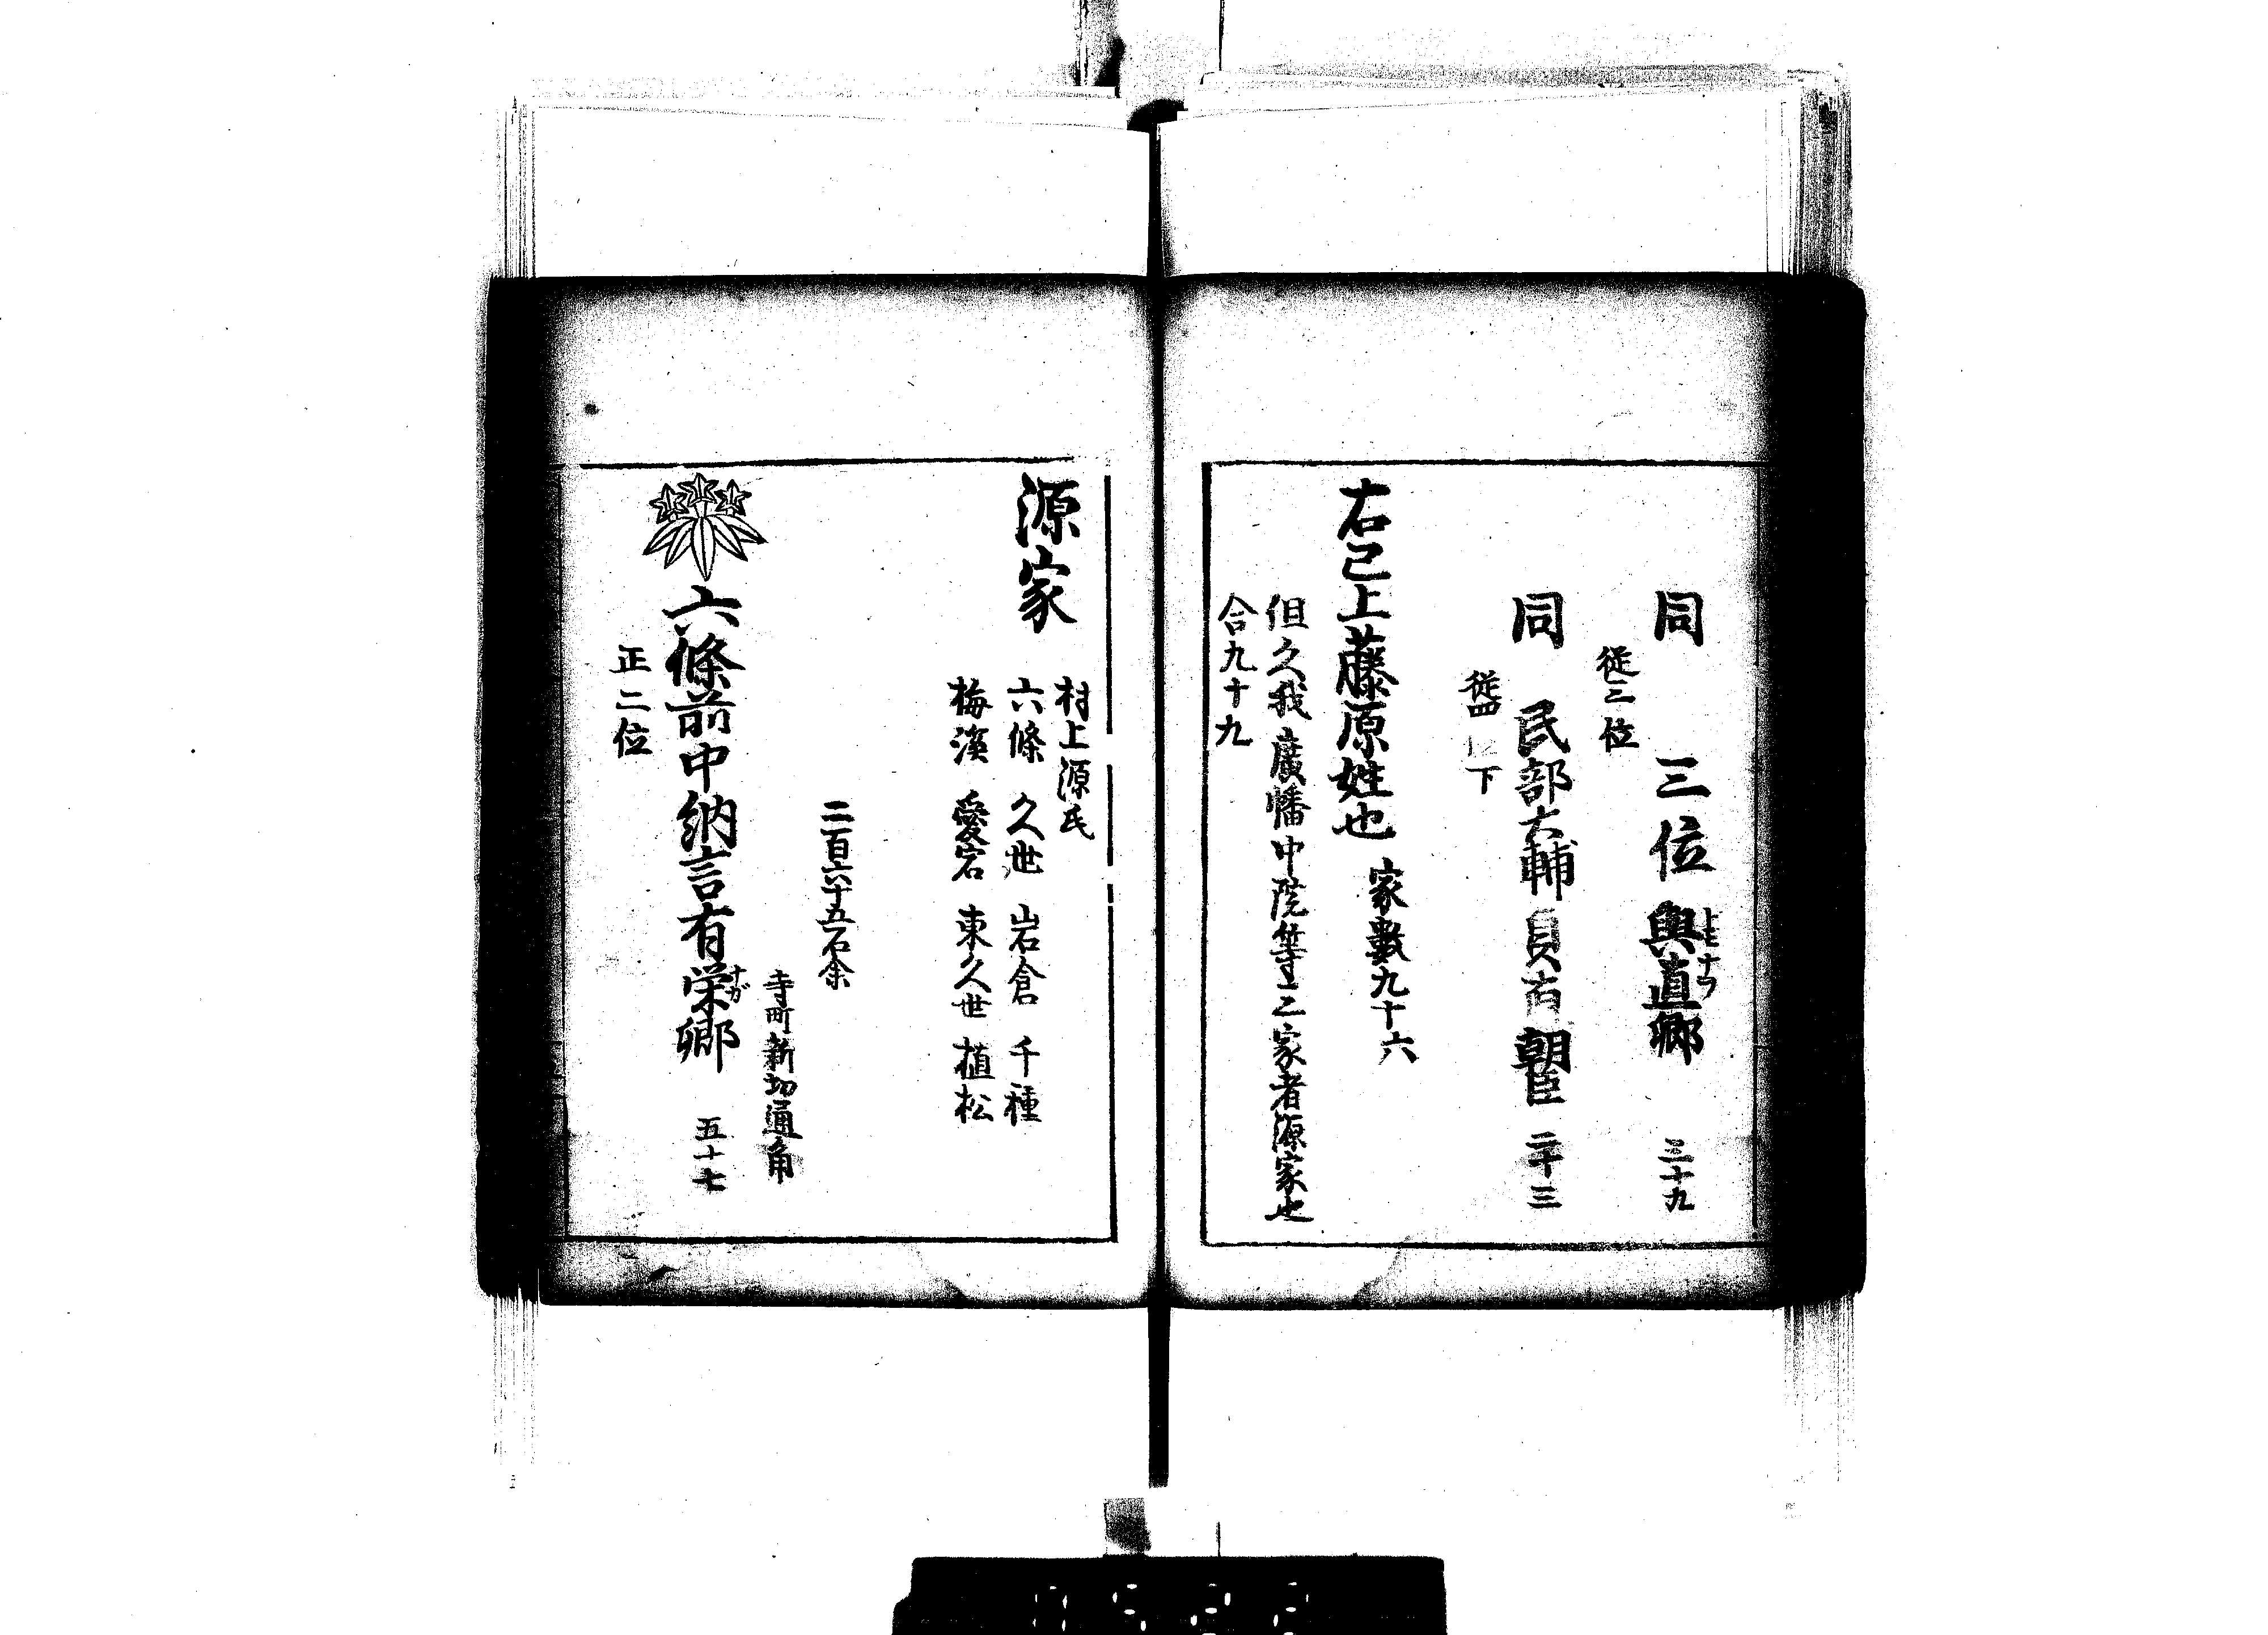 同　三位　興直卿　三十九
ヨキナヲ
従三位
同　民部大輔　朝臣　二十三
従四　下
右已上藤原姓也　家數九十六
但久我廣幡中院等之三家者源家也
合九十九
源家
村上源氏
六條　久世　岩倉　千種
梅溪　愛宕　東久世　植松
二百六十五石余
寺町新切通角
六條前中納言有栄卿　五十七
ナガ
正二位